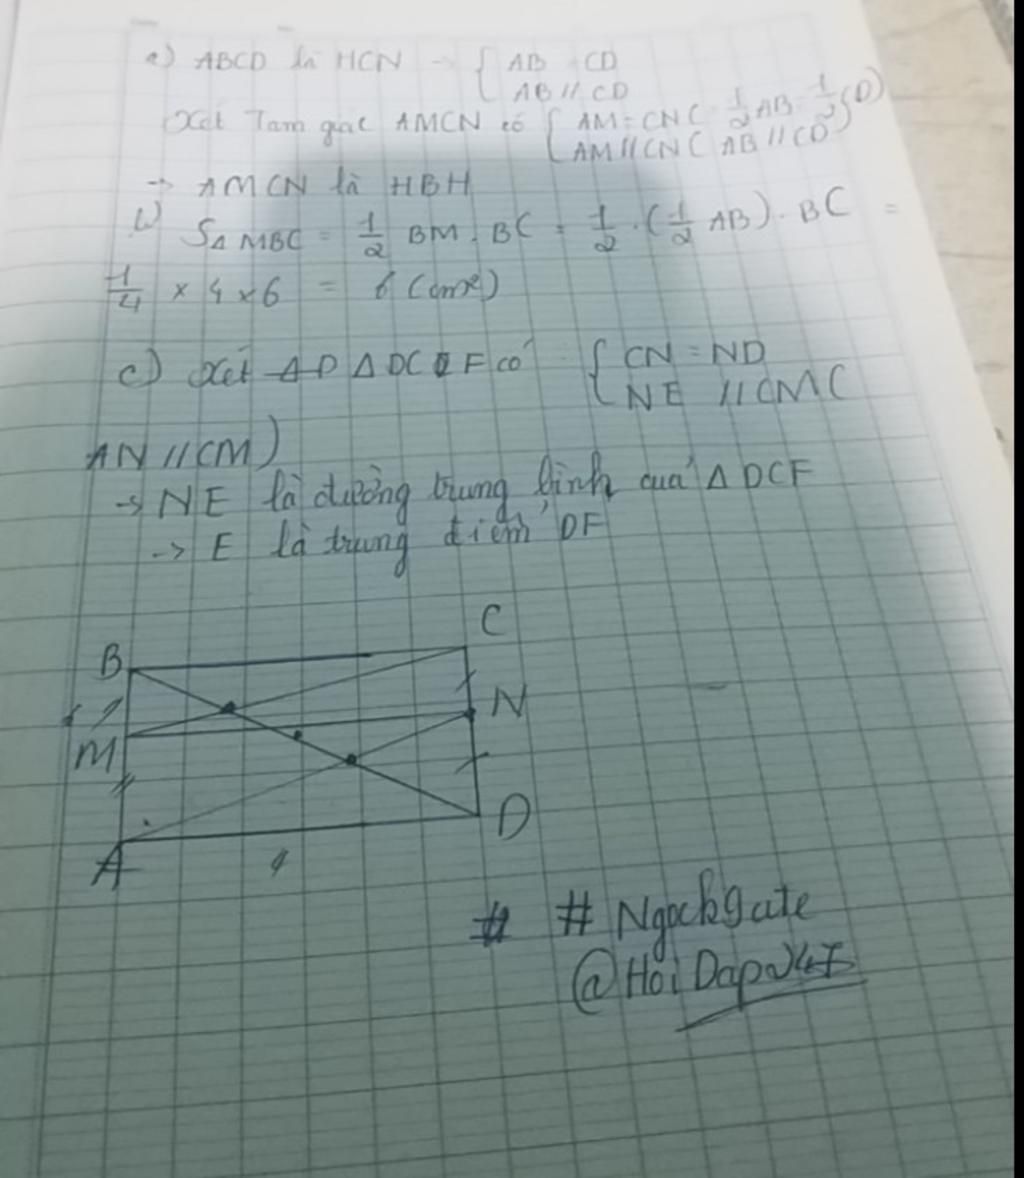 a) ABCD là HCN → { AB = CD
AB // CD
Xét Tam giác AMCN có { AM = CN ( 1/2 AB = 1/2 CD)
AM // CN ( AB // CD )
→ AMCN là HBH
b) S△ MBC = 1/2 BM . BC = 1/2 . (1/2 AB) . BC =
1/4 × 4 × 6 = 6 (cm²)
c) Xét △DCF có { CN = ND
NE // CM (
AN // CM)
→ NE là đường trung bình của △ DCF
→ E là trung điểm DF
B
C
M
N
A
D
# # Ngockgate
@Hoi Dap247